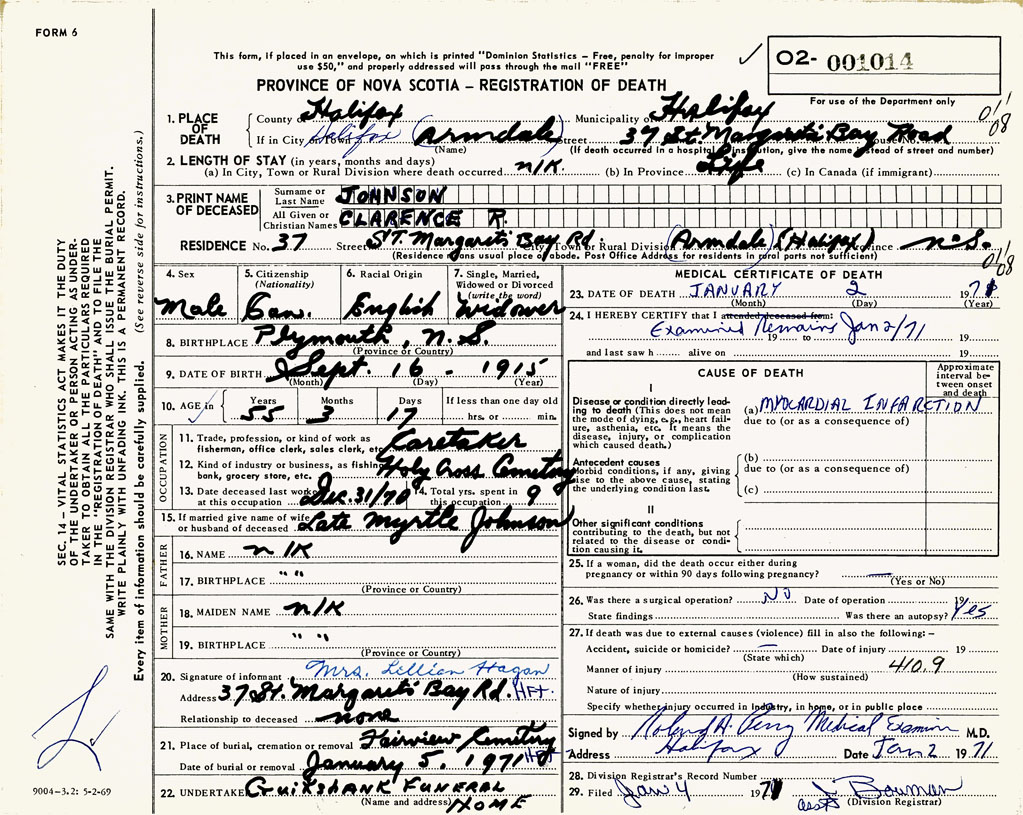 FORM 6
This form, if placed in an envelope, on which is printed "Dominion Statistics – Free, penalty for improper
use $50," and properly addressed will pass through the mail "FREE"
02- 001014
PROVINCE OF NOVA SCOTIA – REGISTRATION OF DEATH
For use of the Department only
1. PLACE OF DEATH
County of Halifax Municipality of Halifax
If in City or Town Halifax (Armdale) Street 37 St. Margarets Bay Road House No.
(Name) (If death occurred in a hospital or institution, give the name instead of street and number)
2. LENGTH OF STAY (in years, months and days)
(a) In City, Town or Rural Division where death occurred n/K. (b) In Province Life (c) In Canada (if immigrant)
3. PRINT NAME OF DECEASED
Surname or Last Name JOHNSON
All Given or Christian Names CLARENCE R.
RESIDENCE No. 37 Street ST. Margarets Bay Rd. City, Town or Rural Division (Armdale) (Halifax) Province N.S.
(Residence means usual place of abode. Post Office Address for residents in rural parts not sufficient)
01/08
01/08
4. Sex Male
5. Citizenship (Nationality) Can.
6. Racial Origin English
7. Single, Married, Widowed or Divorced (write the word) Widower
8. BIRTHPLACE Plymouth, N.S.
(Province or Country)
9. DATE OF BIRTH Sept. 16 - 1915
(Month) (Day) (Year)
10. AGE in Years 55 Months 3 Days 17 If less than one day old
hrs. or min.
OCCUPATION
11. Trade, profession, or kind of work as
fisherman, office clerk, sales clerk, etc. Caretaker
12. Kind of industry or business, as fishing,
bank, grocery store, etc. Holy Cross Cemetery
13. Date deceased last worked
at this occupation Dec. 31/70 14. Total yrs. spent in
this occupation 9
15. If married give name of wife
or husband of deceased Late Myrtle Johnson
FATHER
16. NAME n/K
17. BIRTHPLACE " "
(Province or Country)
MOTHER
18. MAIDEN NAME n/K
19. BIRTHPLACE " "
(Province or Country)
20. Signature of informant Mrs. Lillian Hagan
Address 37 St. Margarets Bay Rd. HFX.
Relationship to deceased none
21. Place of burial, cremation or removal Fairview Cemetery
Date of burial or removal January 5, 1971 HFX
22. UNDERTAKER Cruikshank FUNERAL
(Name and address) HOME
MEDICAL CERTIFICATE OF DEATH
23. DATE OF DEATH JANUARY 2 1971
(Month) (Day) (Year)
24. I HEREBY CERTIFY that I attended deceased from:
Examined Remains Jan 2/71
19 to 19
and last saw h alive on 19
CAUSE OF DEATH
Approximate interval between onset and death
I
Disease or condition directly leading to death (This does not mean the mode of dying, e.g., heart failure, asthenia, etc. It means the disease, injury, or complication which caused death.)
(a) MYOCARDIAL INFARCTION
due to (or as a consequence of)
Antecedent causes
Morbid conditions, if any, giving rise to the above cause, stating the underlying condition last.
(b)
due to (or as a consequence of)
(c)
II
Other significant conditions contributing to the death, but not related to the disease or condition causing it.
25. If a woman, did the death occur either during
pregnancy or within 90 days following pregnancy? —
(Yes or No)
26. Was there a surgical operation? NO Date of operation 19
State findings Was there an autopsy? Yes
27. If death was due to external causes (violence) fill in also the following: –
Accident, suicide or homicide? — Date of injury 19
(State which)
Manner of injury 410.9
(How sustained)
Nature of injury
Specify whether injury occurred in industry, in home, or in public place
Signed by Roland A. Perry Medical Examiner M.D.
Address Halifax Date Jan 2 1971
28. Division Registrar's Record Number
29. Filed Jan 4 1971 J. Bauman
asst (Division Registrar)
SEC. 14 – VITAL STATISTICS ACT MAKES IT THE DUTY
OF THE UNDERTAKER OR PERSON ACTING AS UNDERTAKER
TO OBTAIN ALL THE PARTICULARS REQUIRED
IN THE "REGISTRATION OF DEATH" AND TO FILE THE
SAME WITH THE DIVISION REGISTRAR WHO SHALL ISSUE THE BURIAL PERMIT.
WRITE PLAINLY WITH UNFADING INK. THIS IS A PERMANENT RECORD.
Every item of information should be carefully supplied. (See reverse side for instructions.)
9004–3.2: 5-2-69